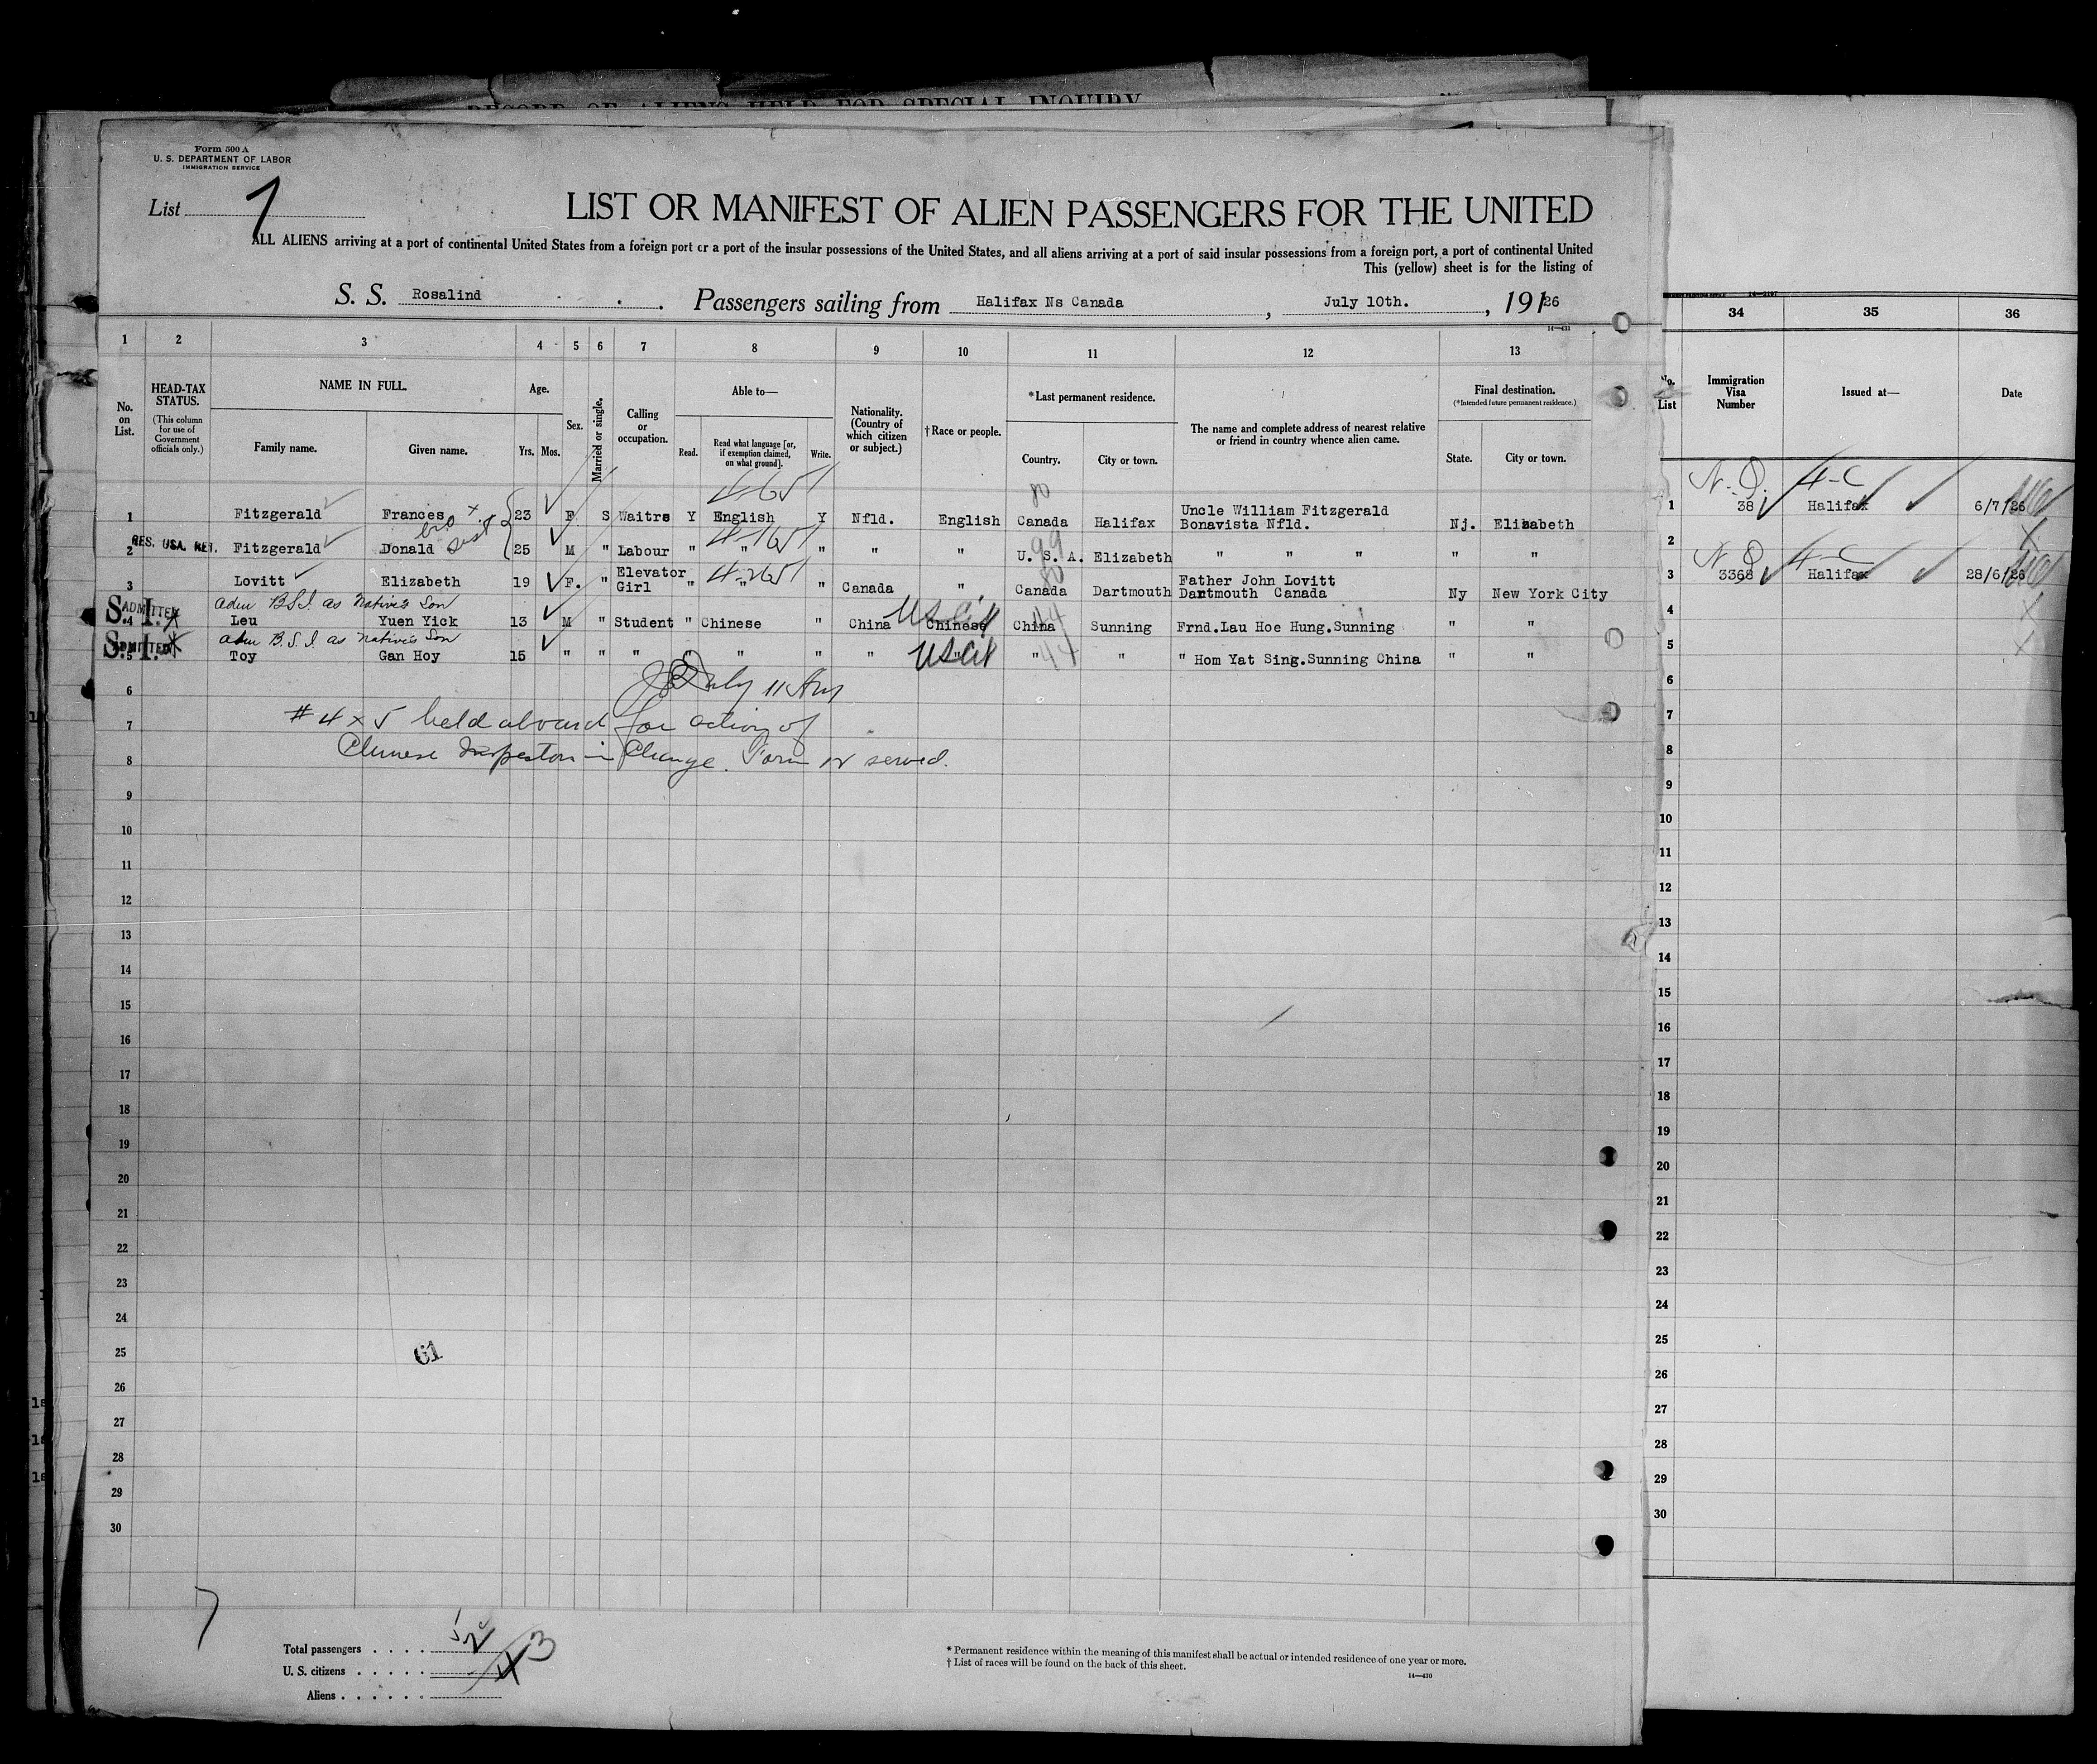 RECORD OF ALIENS HELD FOR SPECIAL INQUIRY
Form 500 A
U. S. DEPARTMENT OF LABOR
IMMIGRATION SERVICE
List 7
LIST OR MANIFEST OF ALIEN PASSENGERS FOR THE UNITED
ALL ALIENS arriving at a port of continental United States from a foreign port or a port of the insular possessions of the United States, and all aliens arriving at a port of said insular possessions from a foreign port, a port of continental United
This (yellow) sheet is for the listing of
S. S. Rosalind . Passengers sailing from Halifax Ns Canada , July 10th. , 191 26
14—431
1 2 3 4 5 6 7 8 9 10 11 12 13 34 35 36
No. on List.
HEAD-TAX STATUS.
(This column for use of Government officials only.)
NAME IN FULL.
Family name. Given name.
Age.
Yrs. Mos.
Sex.
Married or single.
Calling or occupation.
Able to—
Read. Read what language [or, if exemption claimed, on what ground]. Write.
Nationality. (Country of which citizen or subject.)
†Race or people.
*Last permanent residence.
Country. City or town.
The name and complete address of nearest relative or friend in country whence alien came.
Final destination.
(*Intended future permanent residence.)
State. City or town.
No. List
Immigration Visa Number
Issued at—
Date
1 Fitzgerald Frances 23 F S Waitrs Y English Y Nfld. English Canada Halifax Uncle William Fitzgerald Bonavista Nfld. Nj. Elizabeth 1 38 Halifax 6/7/26
bro x sist
RES. USA. RET.
2 Fitzgerald Donald 25 M " Labour " " " " " U. S. A. Elizabeth " " " " " 2
3 Lovitt Elizabeth 19 F. " Elevator Girl " " " Canada " Canada Dartmouth Father John Lovitt Dartmouth Canada Ny New York City 3 3368 Halifax 28/6/26
adm B.S.I. as Native's Son
S.I. ADMITTED
4 Leu Yuen Yick 13 M " Student " Chinese " China Chinese China Sunning Frnd.Lau Hoe Hung.Sunning " " 4
US Cit
adm B.S.I. as Native's Son
S.I. ADMITTED
5 Toy Gan Hoy 15 " " " " " " " " " " " Hom Yat Sing.Sunning China " " 5
US Cit
July 11 Am
# 4 x 5 held aboard for action of
Chinese Inspector in Charge. Form 12 served.
6 6
7 7
8 8
9 9
10 10
11 11
12 12
13 13
14 14
15 15
16 16
17 17
18 18
19 19
20 20
21 21
22 22
23 23
24 24
25 25
61
26 26
27 27
28 28
29 29
30 30
7
Total passengers . . . .
U. S. citizens . . . . .
Aliens . . . . . .
3
* Permanent residence within the meaning of this manifest shall be actual or intended residence of one year or more.
† List of races will be found on the back of this sheet.
14—430